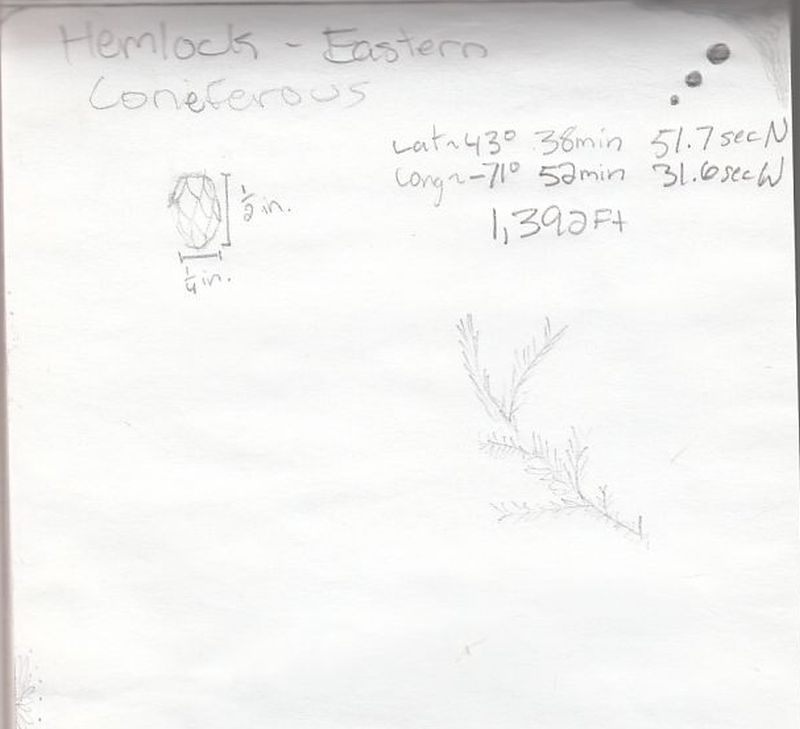 Hemlock - Eastern
Coneferous
Lat~43° 38min 51.7secN
Long~-71° 52min 31.6secW
1,392Ft
1/2 in.
1/4 in.